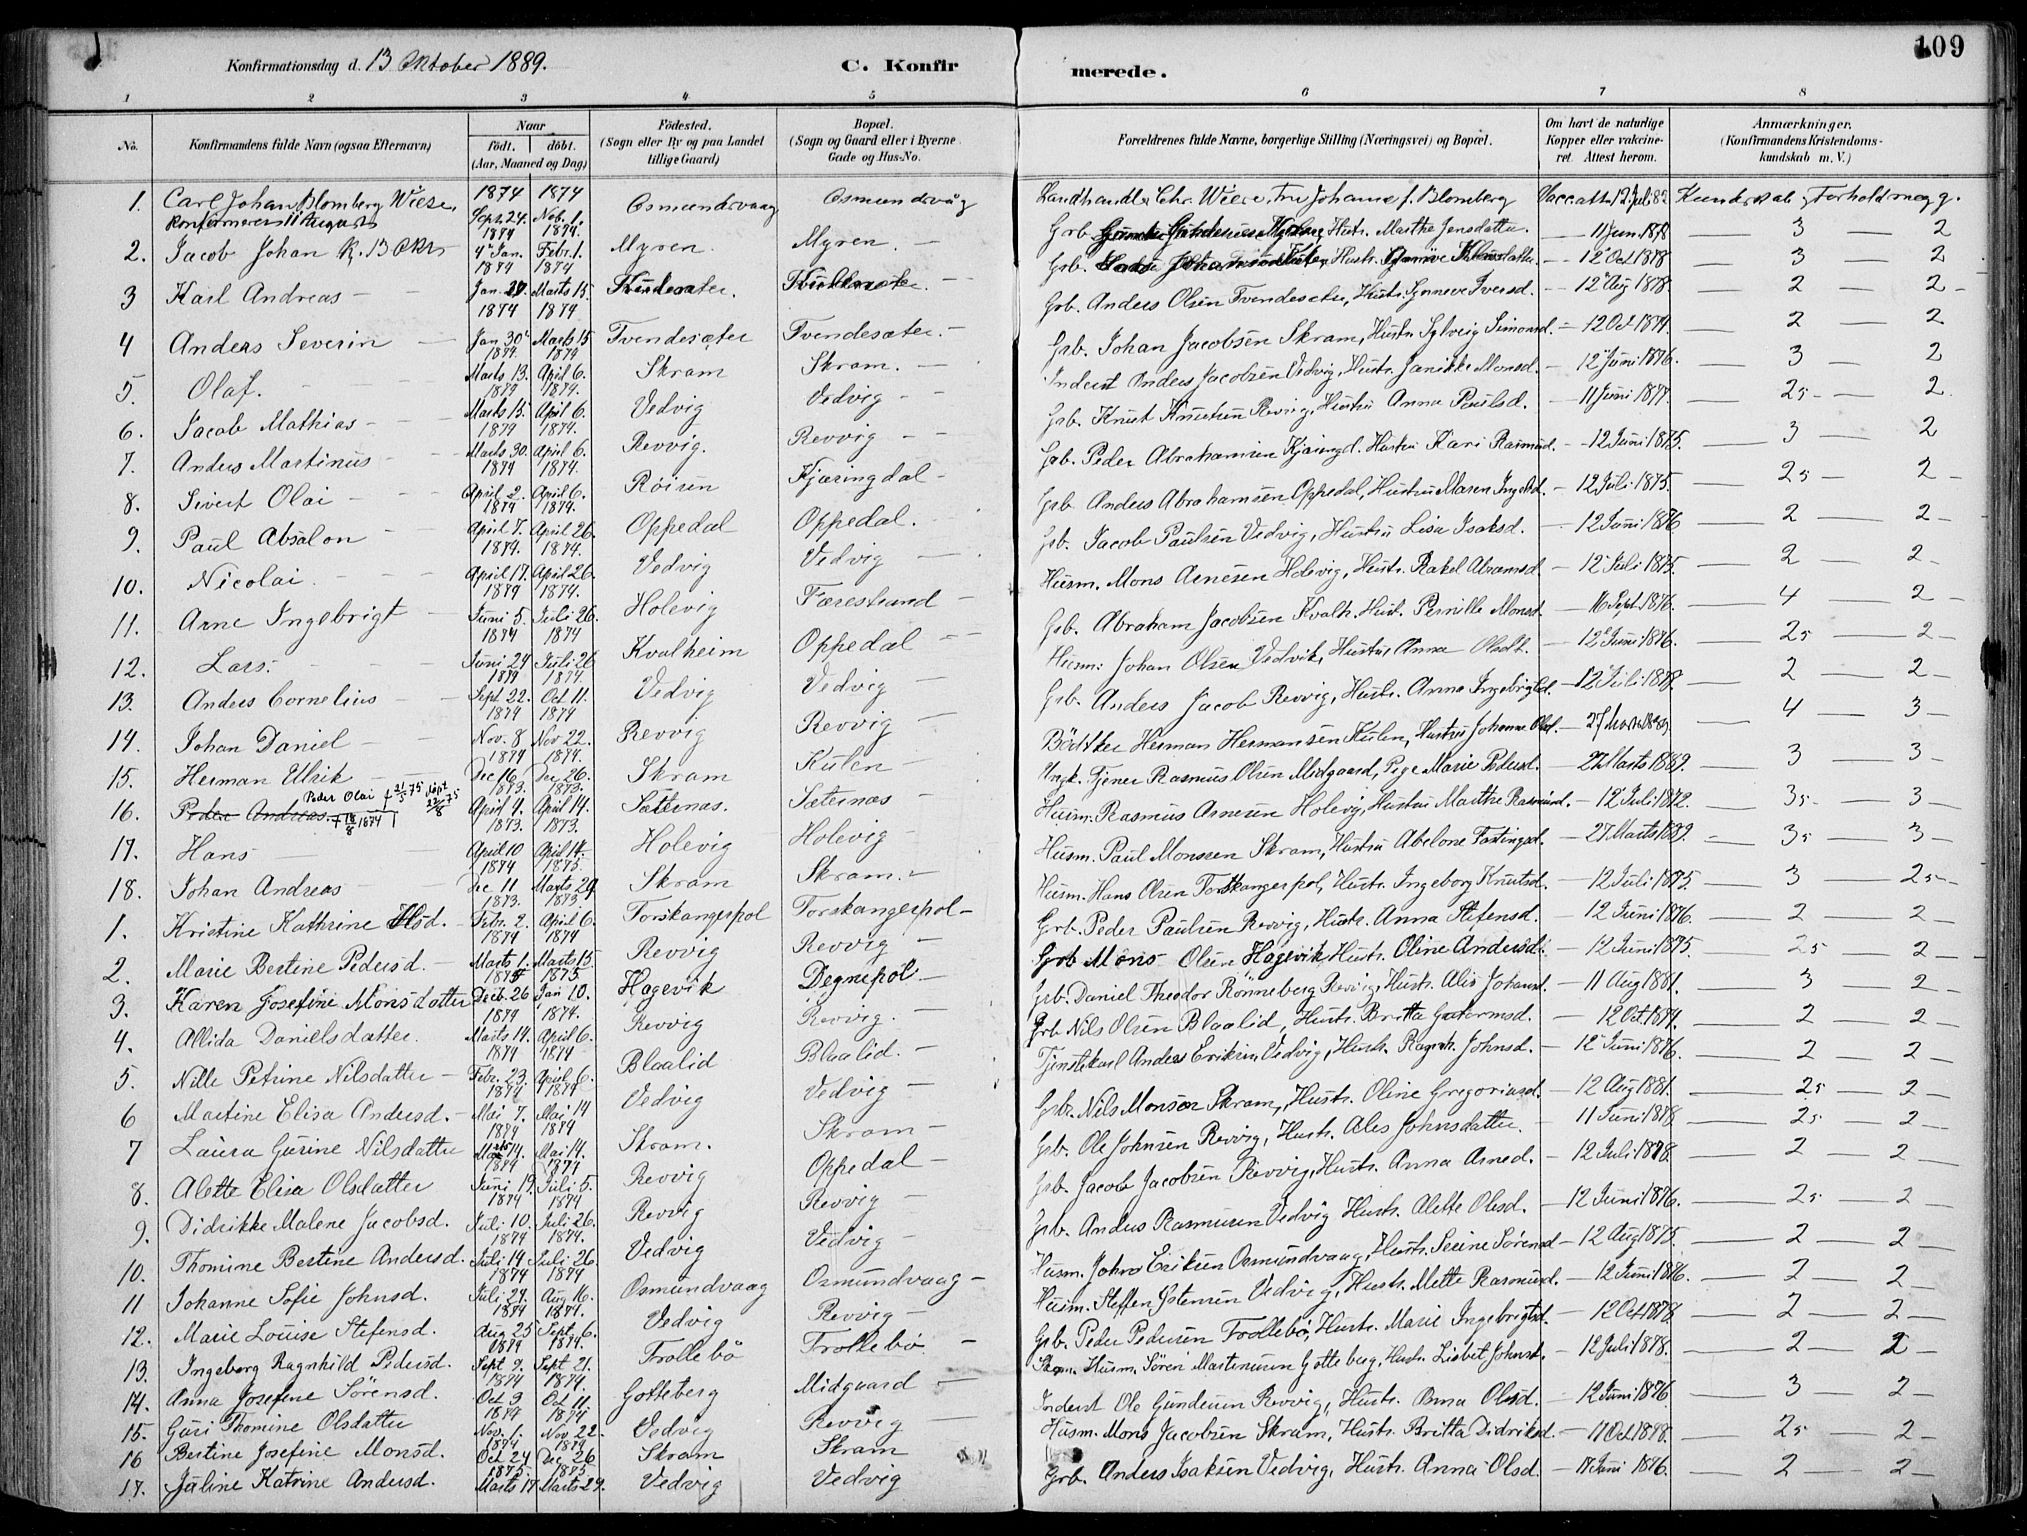 109
Konfirmationsdag d. 13 Oktober 1889. C. Konfirmerede.
1 2 3 4 5 6 7 8
No. Konfirmandens fulde Navn (ogsaa Efternavn) Naar födt. döbt. (Aar, Maaned og Dag) Födested. (Sogn eller By og paa Landet tillige Gaard) Bopæl. (Sogn og Gaard eller i Byerne Gade og Hus-No. Forældrenes fulde Navne, borgerlige Stilling (Næringsvei) og Bopæl. Om havt de naturlige Kopper eller vakcineret Attest herom. Anmærkninger. (Konfirmandens Kristendomskundskab m. V.)
1. Carl Johan Blomberg Wiese, 1874 Sept. 24. 1874 Nob. 1. Osmundsvaag Osmundsvåg Landhandler Chr. Wiese, Fru Johanne f. Blomberg Vaccatt. 12 Juli 82 Kundskab g. Forhold meg g.
Konfirmeres 11 August
2. Jacob Johan K. 13 Okt 1874 4de Jan. 1874. Febr. 1. Myren. Myren. — Hustr. Marthe Jensdatter. — 11 Jun. 1878 — 3 — 2
3 Karl Andreas — 1874 Jan. 1874 Marts 15. — 12 Oct 1878 — 3 — 2
4 Anders Severin — 1874 Jan 30 1874 Marts 15 Tvendesæter Tvendesæter. — Grb. Anders Olsen Tvendesæter, Hustr. Synneve Iversd. — 12 Aug 1878. — 2 — 2 —
5. Olaf. 1874. Marts 13. 1874 April 6. Skram Skram. — Grb. Johan Jacobsen Skram, Hustr. Sylveig Simonsd. — 12 Oct 1874. — 2 — 2
6. Jacob Mathias — 1874 Marts 15. 1874. April 6. Vedvig Vedvig — Inderst Anders Jacobsen Vedvig, Hustr. Janikke Monsd. — 12 Juni 1876. — 3 — 2
7. Anders Martinus — 1874 Marts 30. 1874. April 6. Revvig. Revvig — Grb. Knut Knutsen Revvig, Hustru Anna Paulsd. — 11 Juni 1877. — 25 — 2.
8. Sivert Olai — 1874 April 2. 1874. April 6. Röisen Kjæringdal — Grb. Peder Abrahamsen Kjæringd. Hustru Kari Rasmusd. — 12 Juni 1875. — 3 — 2
9. Paul Absalon — 1874 April 7. 1874. April 26. Oppedal Oppedal. Grb. Anders Abrahamsen Oppedal, Hustru Maren — 12 Juli 1875. — 25 — 2 —
10. Nicolai. 1874. April 17. 1874. April 26. Vedvig Vedvig — Grb. Jacob Paulsen Vedvig, Hustru Lisa Isaksd. — 12 Juni 1876 — 2 — 2 —
11. Arne Ingebrigt 1874 Juni 5. 1874. Juli 26. Holevig Færestrand — Husm. Mons Arnesen Holevig, Hustr. Rakel Abramsd. — 12 Juli 1875. — 2 — 2 —
12. Lars. 1874 Juni 24 1874 Juli 26 Kvalheim Oppedal — Grb. Abraham Jacobsen Kvalh. Hust. Pernille Monsd. — 16 Sept. 1876. — 4 — 2 —
13. Anders Cornelius 1874 Sept 22. 1874. Oct 11. Vedvig Vedvig — Husm: Johan Olsen Vedvik, Hustru Anna Olsdt. — 12 Juni 1876. — 25 — 2 —
14. Johan Daniel — 1874 Nov. 8 1874 Nov 22. Revvig Revvig — Grb. Anders Jacob Revvig, Hustr. Anna Ingebrigtsd. — 12 Juli 1878. — 2 — 2
15. Herman Ulrik 1874 Dec 16. 1874. Dec 26. Skram Kulen — Bödtker Herman Hermansen Kulen, Hustru Johanne Olsd. — — 4 — 3
16. Peder Andreas. Peder Olai 1873. April 4. 1873. April 14. Sæternæs. Sæternæs — Ungk. Tjener Rasmus Olsen Midgaard, Pige Marie Pedersd. — 27 Marts 1889. — 3 — 3 —
17. Hans — 1873. April 10 1873. April 14. Holevig Holevig — Husm. Rasmus Arnesen Holevig, Hustru Marthe Rasmusd. — 12 Juli 1872. — 35 — 3 —
18. Johan Andreas — 1874 Dec 11 1875 Marts 29 Skram Skram. — Husm. Paul Monssen Skram, Hustru Abelone Fastingsd. — 27 Marts 1889. — 35 — 3 —
1. Kristine Kathrine — 1873. Febr. 2. April 6. Torskangerpol Torskangerpol — Husm. Hans Olsen Torskangerpol, Hustr. Ingeborg Knutsd. — 12 Juli 1875. — 3 — 25 —
2. Marie Bertine Pedersd. — 1874 Marts 1. 1874 Marts 15 Revvig Revvig — Grb. Peder Paulsen Revvig, Hustr. Anna Stefensd. — 12 Juni 1876. — 2 — 2 —
3. Karen Josefine Monsdatter Decb. 26 1875 Jan 10. Hagevik Degnepol — Grb Mons Olsen Hagevik Hustr. Oline Andersd. — 12 Juni 1875. — 25 — 2
4. Allida Danielsdatter. 1874 Marts 14. 1874. April 6. Revvig Revvig. — Grb. Daniel Theodor Rönneberg Revvig, Hustr. Alis Johansd. — 11 Aug 1881. — 3 — 2
5. Nille Petrine Nilsdatter — 1874 Febr. 23. 1874 April 6. Blaalid Blaalid. — Grb Nils Olsen Blaalid, Hustr. Britta Guttormsd. — 12 Oct. 1874. — 2 — 2 —
6 Martine Elisa Andersd. — 1874 Mai 7. 1874 Mai 14 Vedvig Vedvig — Tjenstekarl Anders Eriksen Vedvig, Hustr. Ragnh. Johnsd. — 12 Juni 1876. — 2 — 2 —
7 Laura Gurine Nilsdatter 1874 1874 Mai 14. Skram. Skram — Grb. Nils Monsen Skram, Hustr. Oline Gregoriusd. — 12 Aug 1881. — 25 — 2
8. Alette Elisa Olsdatter 1874 Juni 19. 1874 Juli 5. Revvig Oppedal — Grb. Ole Johnsen Revvig, Hustr. Ales Johnsdatter. — 11 Juni 1878 — 25 — 2 —
9. Didrikke Malene Jacobsd. 1874 Juli 10. 1874 Juli 26. Revvig Revvig Grb. Jacob Jacobsen Revvig, Hustr. Anna Arned. — 12 Juli 1878. — 2 — 2 —
10. Thomine Bertine Andersd. 1874 Juli 14 1874. Juli 26. Vedvig Vedvig — Grb. Anders Rasmusen Vedvig Hustr. Alette Olesd. — 12 Juni 1876. — 25 — 2
11 Johanne Sofie Johnsd. 1874 Juli 24. 1874 Aug 16. Osmundvaag Osmundvaag — Husm. John Eriksen Osmundvaag, Hustr. Serine Sörensd — 12 Aug 1875. — 2 — 2 —
12. Marie Louise Stefensd. 1874 Aug 25 1874. Sept. 6. Vedvig Revvig — Husm. Steffen Ostensen Vedvig, Hustr. Mette Rasmusd. — 12 Juni 1876. — 2 — 2
13. Ingeborg Ragnhild Pedersd. 1874 Sept 9. 1874. Sept 21. Trollebö Trollebö — Grb. Peder Pedersen Trollebö, Hustr. Marie Ingebrigtsd. — 12 Oct 1878. — 2 — 2 —
14. Anna Josefine Sörensd. 1874 Oct 3 1874. Oct 11 Gotteberg Midgaard — Husm. Sören Martinusen Gotteberg, Hustr. Lisbet Johnsd. — 12 Juli 1878. — 2 — 2 —
15. Guri Thomine Olsdatter 1874 Nov. 1. 1874 Nov 22 Vedvig Revvig — Inderst Ole Gundersen Revvig, Hustr. Anna Olsd. — 12 Juni 1876 — 3 — 2 —
16 Bertine Josefine Monsd. 1874 Oct 24 1874 Dec 26 Skram Skram Husm. Mons Jacobsen Skram, Hustr. Britta Didriksd. — 11 Oct 1878. — 25 — 2 —
17. Juline Katrine Andersd. 1875. Marts 17 1875 Marts 29. Vedvig Vedvig Grb. Anders Isaksen Vedvig, Hustr. Anna Olsd. — 17 Juni 1876. — 2 — 2 —